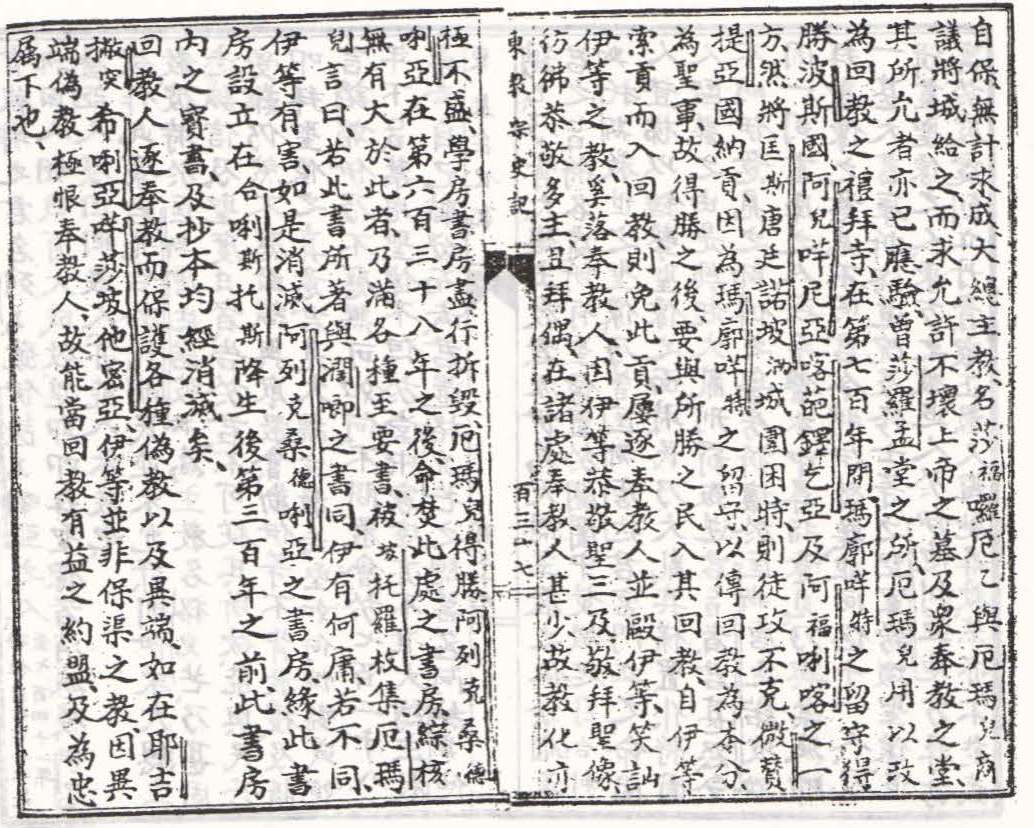 自保、無計求成、大總主教、名莎福囉厄乙、與厄瑪兒商
議將城給之、而求允許不壞上帝之墓、及衆奉教之堂、
其所允者亦已應驗、曾莎羅孟堂之所、厄瑪兒用以改
為回教之禮拜寺、在第七百年間、瑪廓咩特之留守、得
勝波斯國、阿兒咩尼亞、喀葩鐸乞亞、及阿福唎喀之一
方、然將匡斯唐廷諾坡泐城圍困時、則徒攻不克、微贊
提亞國納貢、因為瑪廓咩特之留守、以傳回教為本分、
為聖事、故得勝之後、要與所勝之民入其回教、自伊等
索貢、而入回教、則免此貢、屢逐奉教人、並毆伊等、笑訕
伊等之教、奚落奉教人、因伊等恭敬聖三、及敬拜聖像、
彷彿恭敬多主、且拜偶、在諸處奉教人甚少、故教化亦
東教宗史記
百三十七
極不盛、學房書房盡行拆毀、厄瑪兒得勝阿列克桑德
唎亞、在第六百三十八年之後、命焚此處之書房、綜核
無有大於此者、乃滿各種至要書、被坡托羅枚集、厄瑪
兒言曰、若此書所著、與濶唧之書同、伊有何庸、若不同、
伊等有害、如是消滅阿列克桑德唎亞之書房、緣此書
房設立在合唎斯托斯降生後第三百年之前、此書房
內之寶書、及抄本、均經消滅矣、
回教人逐奉教、而保護各種偽教、以及異端、如在耶吉
撇突、希唎亞、咩莎坡他密亞、伊等並非保渠之教、因異
端偽教極恨奉教人、故能當回教有益之約盟、及為忠
屬下也、